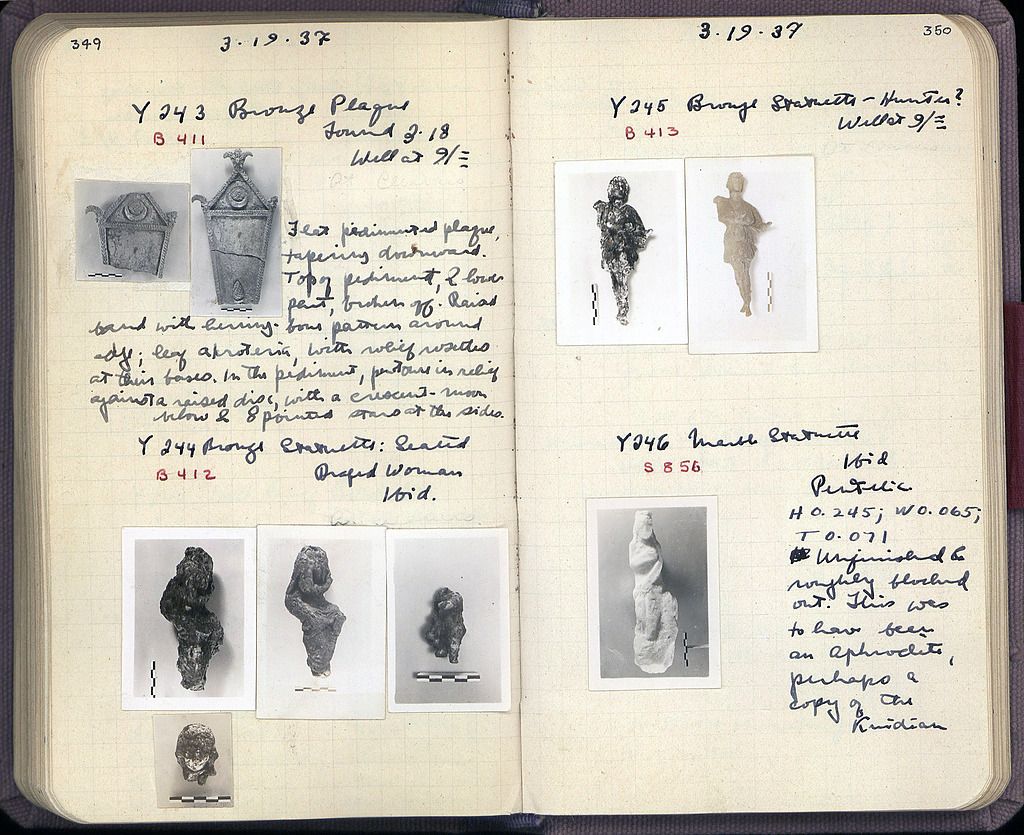 349
3·19·37
Y 243 Bronze Plaque
B 411
Found 3·18
Well at 9/Ξ
Flat pedimented plaque,
tapering downward.
Top of pediment, & lower
part, broken off. Raised
band with herring-bone pattern around
edge; leaf akroteria, with relief rosettes
at their bases. In the pediment, in relief
against a raised disc, with a crescent-moon
below & 8 pointed stars at the sides.
Y 244 Bronze Statuette: Seated
B 412
Draped Woman
Ibid.
3·19·37
350
Y 245 Bronze Statuette - Hunter?
B 413
Well at 9/Ξ
Y 246 Marble Statuette
S 856
Ibid
Pentelic
H 0.245; W 0.065;
T 0.071
Unfinished &
roughly blocked
out. This was
to have been
an Aphrodite,
perhaps a
copy of the
Knidian